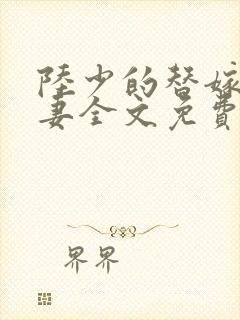 陸少的替嫁
妻全文免費
界界